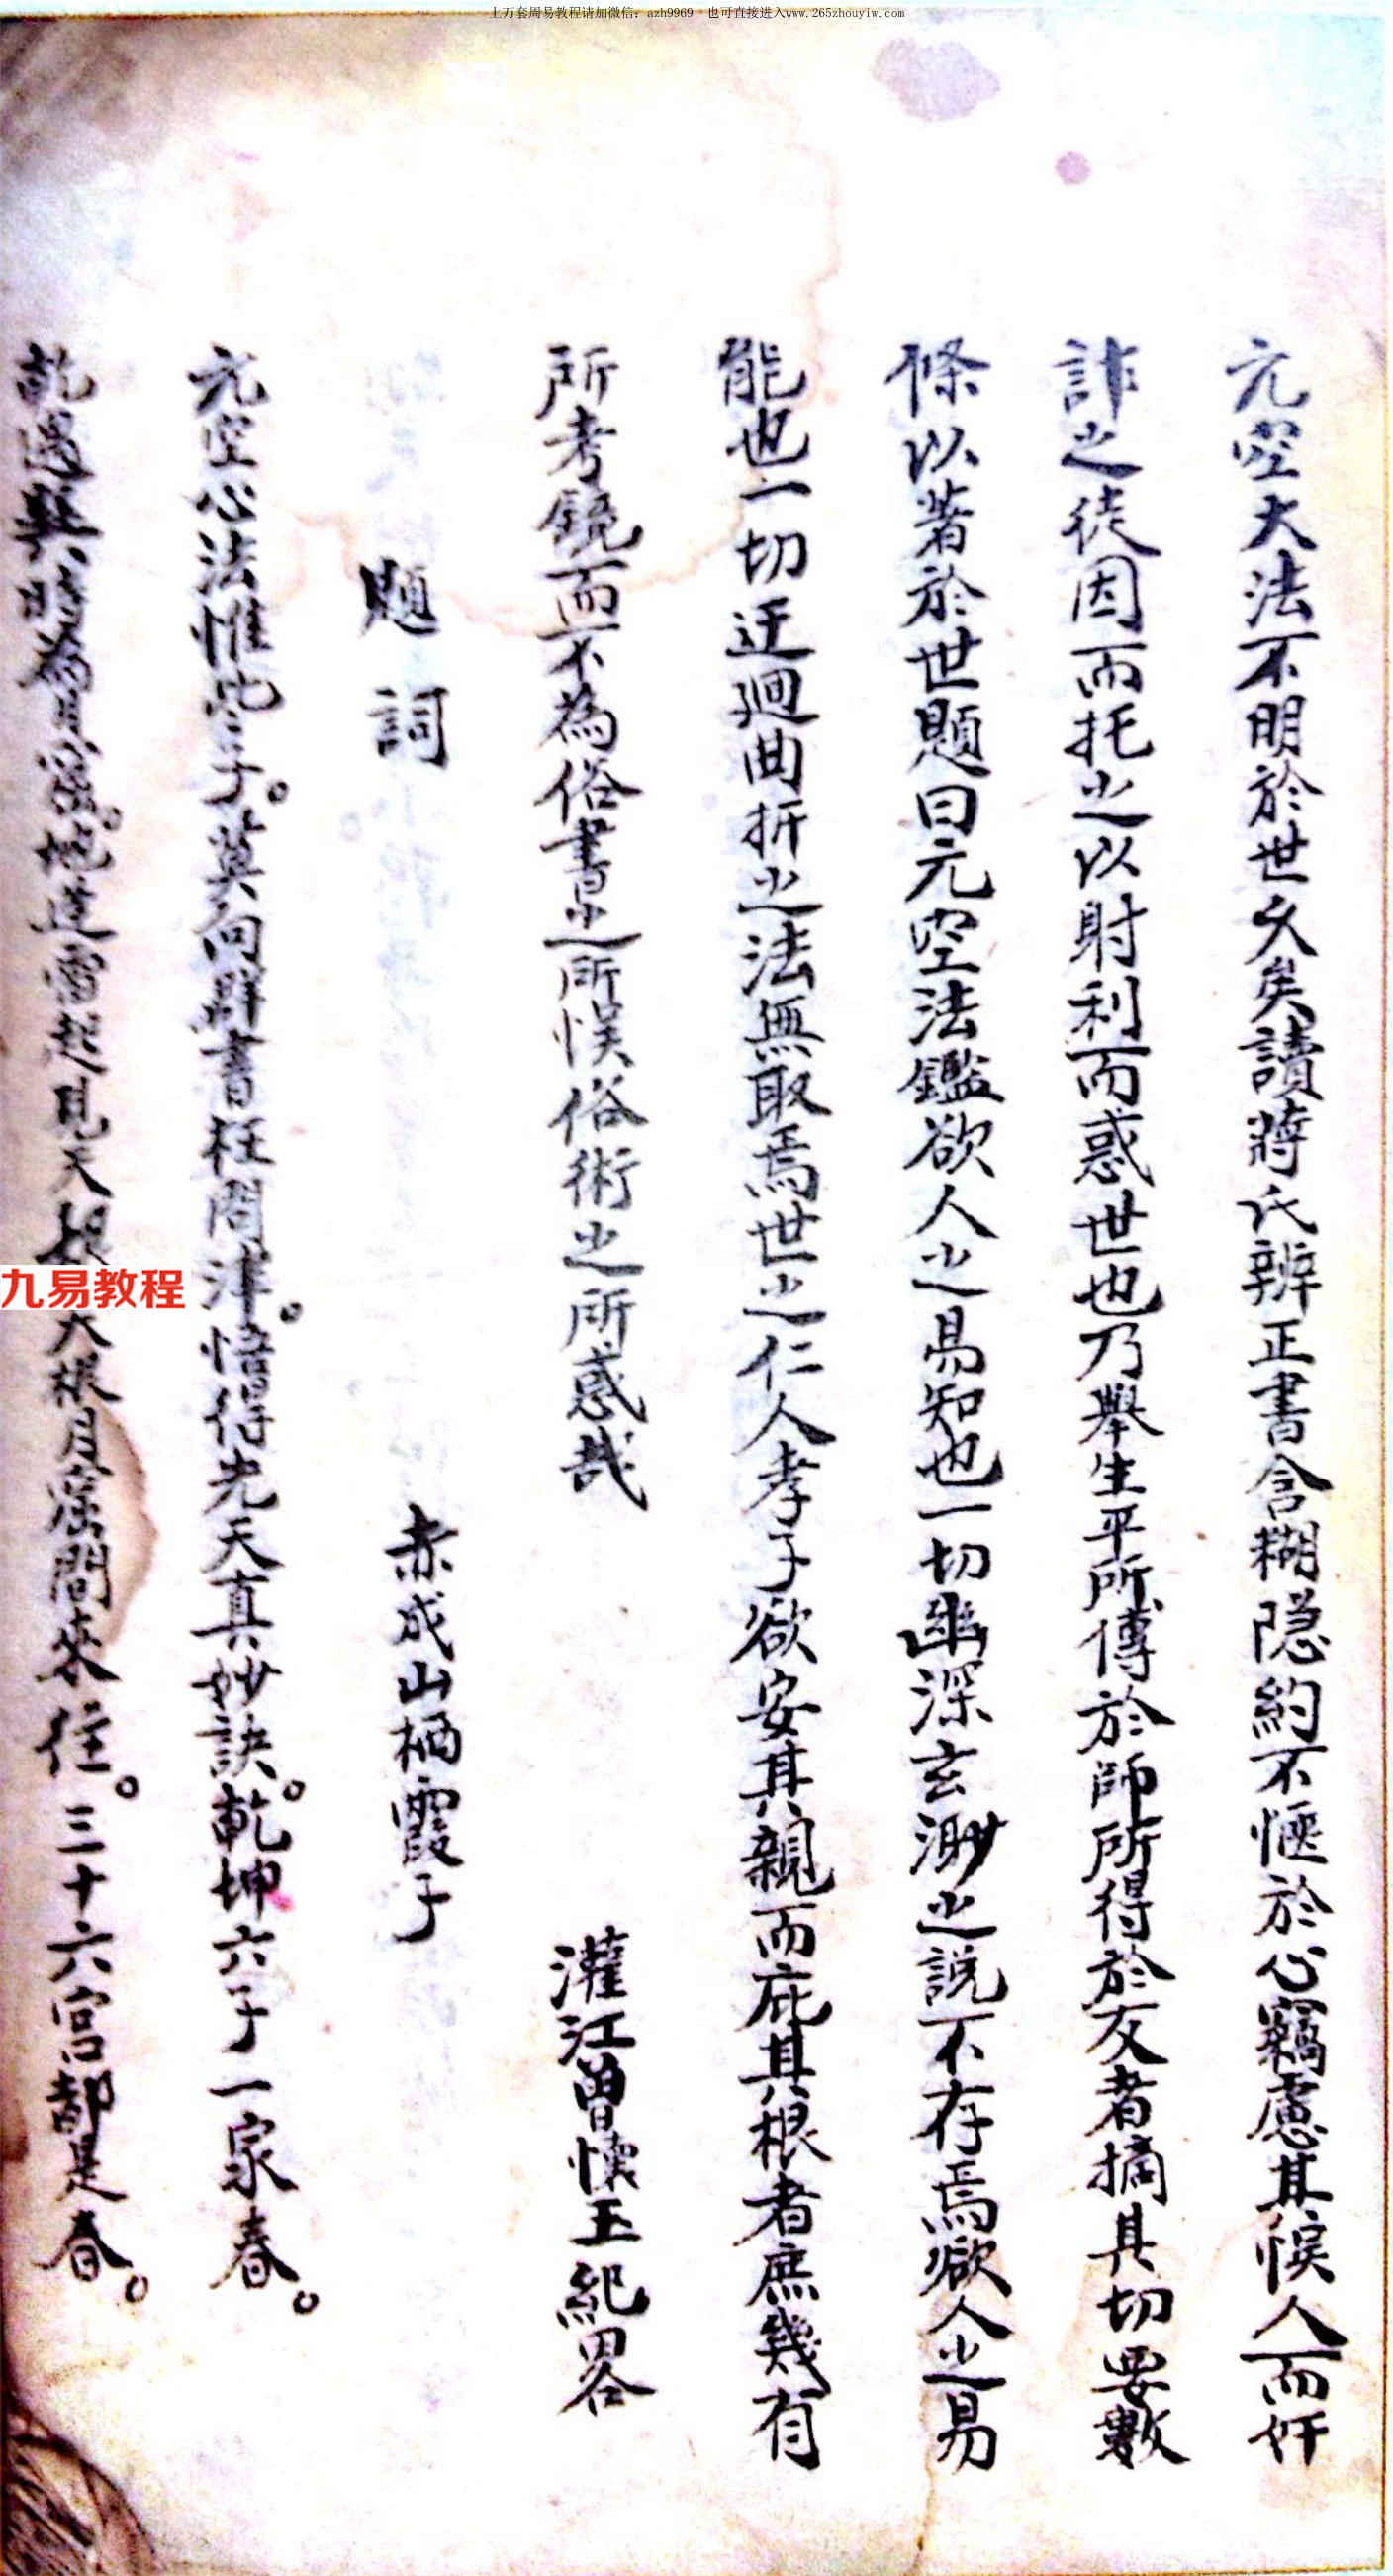 上万套周易教程请加微信：azh9969 也可直接进入www.265zhouyiw.com
元空大法不明於世久矣讀蔣氏辨正書含糊隐約不愜於心竊慮其悮人而奸
詐之徒因而托之以射利而惑世也乃舉生平所傳於師所得於友者摘其切要數
條以著於世題曰元空法鑑欲人之易知也一切幽深玄渺之説不存焉欲人之易
能也一切迂迴曲折之法無取焉世之仁人孝子欲安其親而庇其根者庶幾有
所考鏡而不為俗書之所悮俗術之所惑哉
灌江曾懷玉紀畧
題詞
赤成山栖霞子
元空心法惟挨子。莫向群書枉問津。悟得先天真妙訣。乾坤六子一家春。
乾遇巽時為月窟。地逢雷起見天根 天根月窟間來往。三十六宮都是春。
九易教程